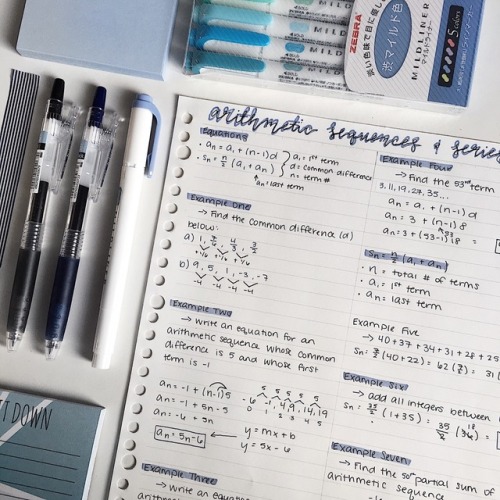 ZEBRA
渋マイルド色
MILDLINER
マイルドライナー
5 colors
arithmetic sequences & series
Equations
• an = a1 + (n-1)d
• Sn = n/2 (a1 + an)
a1 = 1st term
d = common difference
n = term #
an = last term
Example One
→ Find the common difference (d)
below:
b) 9, 5, 1, -3, -7
-4 -4 -4 -4
Example Two
→ write an equation for an
arithmetic sequence whose common
difference is 5 and whose first
term is -1
an = -1 + (n-1)5
an = -1 + 5n - 5
an = -6 + 5n
an = 5n-6
5 5 5 5 5
-6 -1, 4, 9, 14, 19
0 1 2 3 4 5
y = mx + b
y = 5x - 6
Example Three
→ write an equation
Example Four
→ Find the 53rd term
3, 11, 19, 27, 35...
an = a1 + (n-1)d
an = 3 + (n-1)8
an = 3 + (53-1)8 =
Sn = n/2 (a1 + an)
• n = total # of terms
• a1 = 1st term
• an = last term
Example Five
→ 40 + 37 + 34 + 31 + 28 + 25
Example Six
→ add all integers between
Sn = 35/2 (1+35) = 35/2 (36) =
18
Example Seven
→ Find the 50th partial sum of
arithmetic sequence
T DOWN